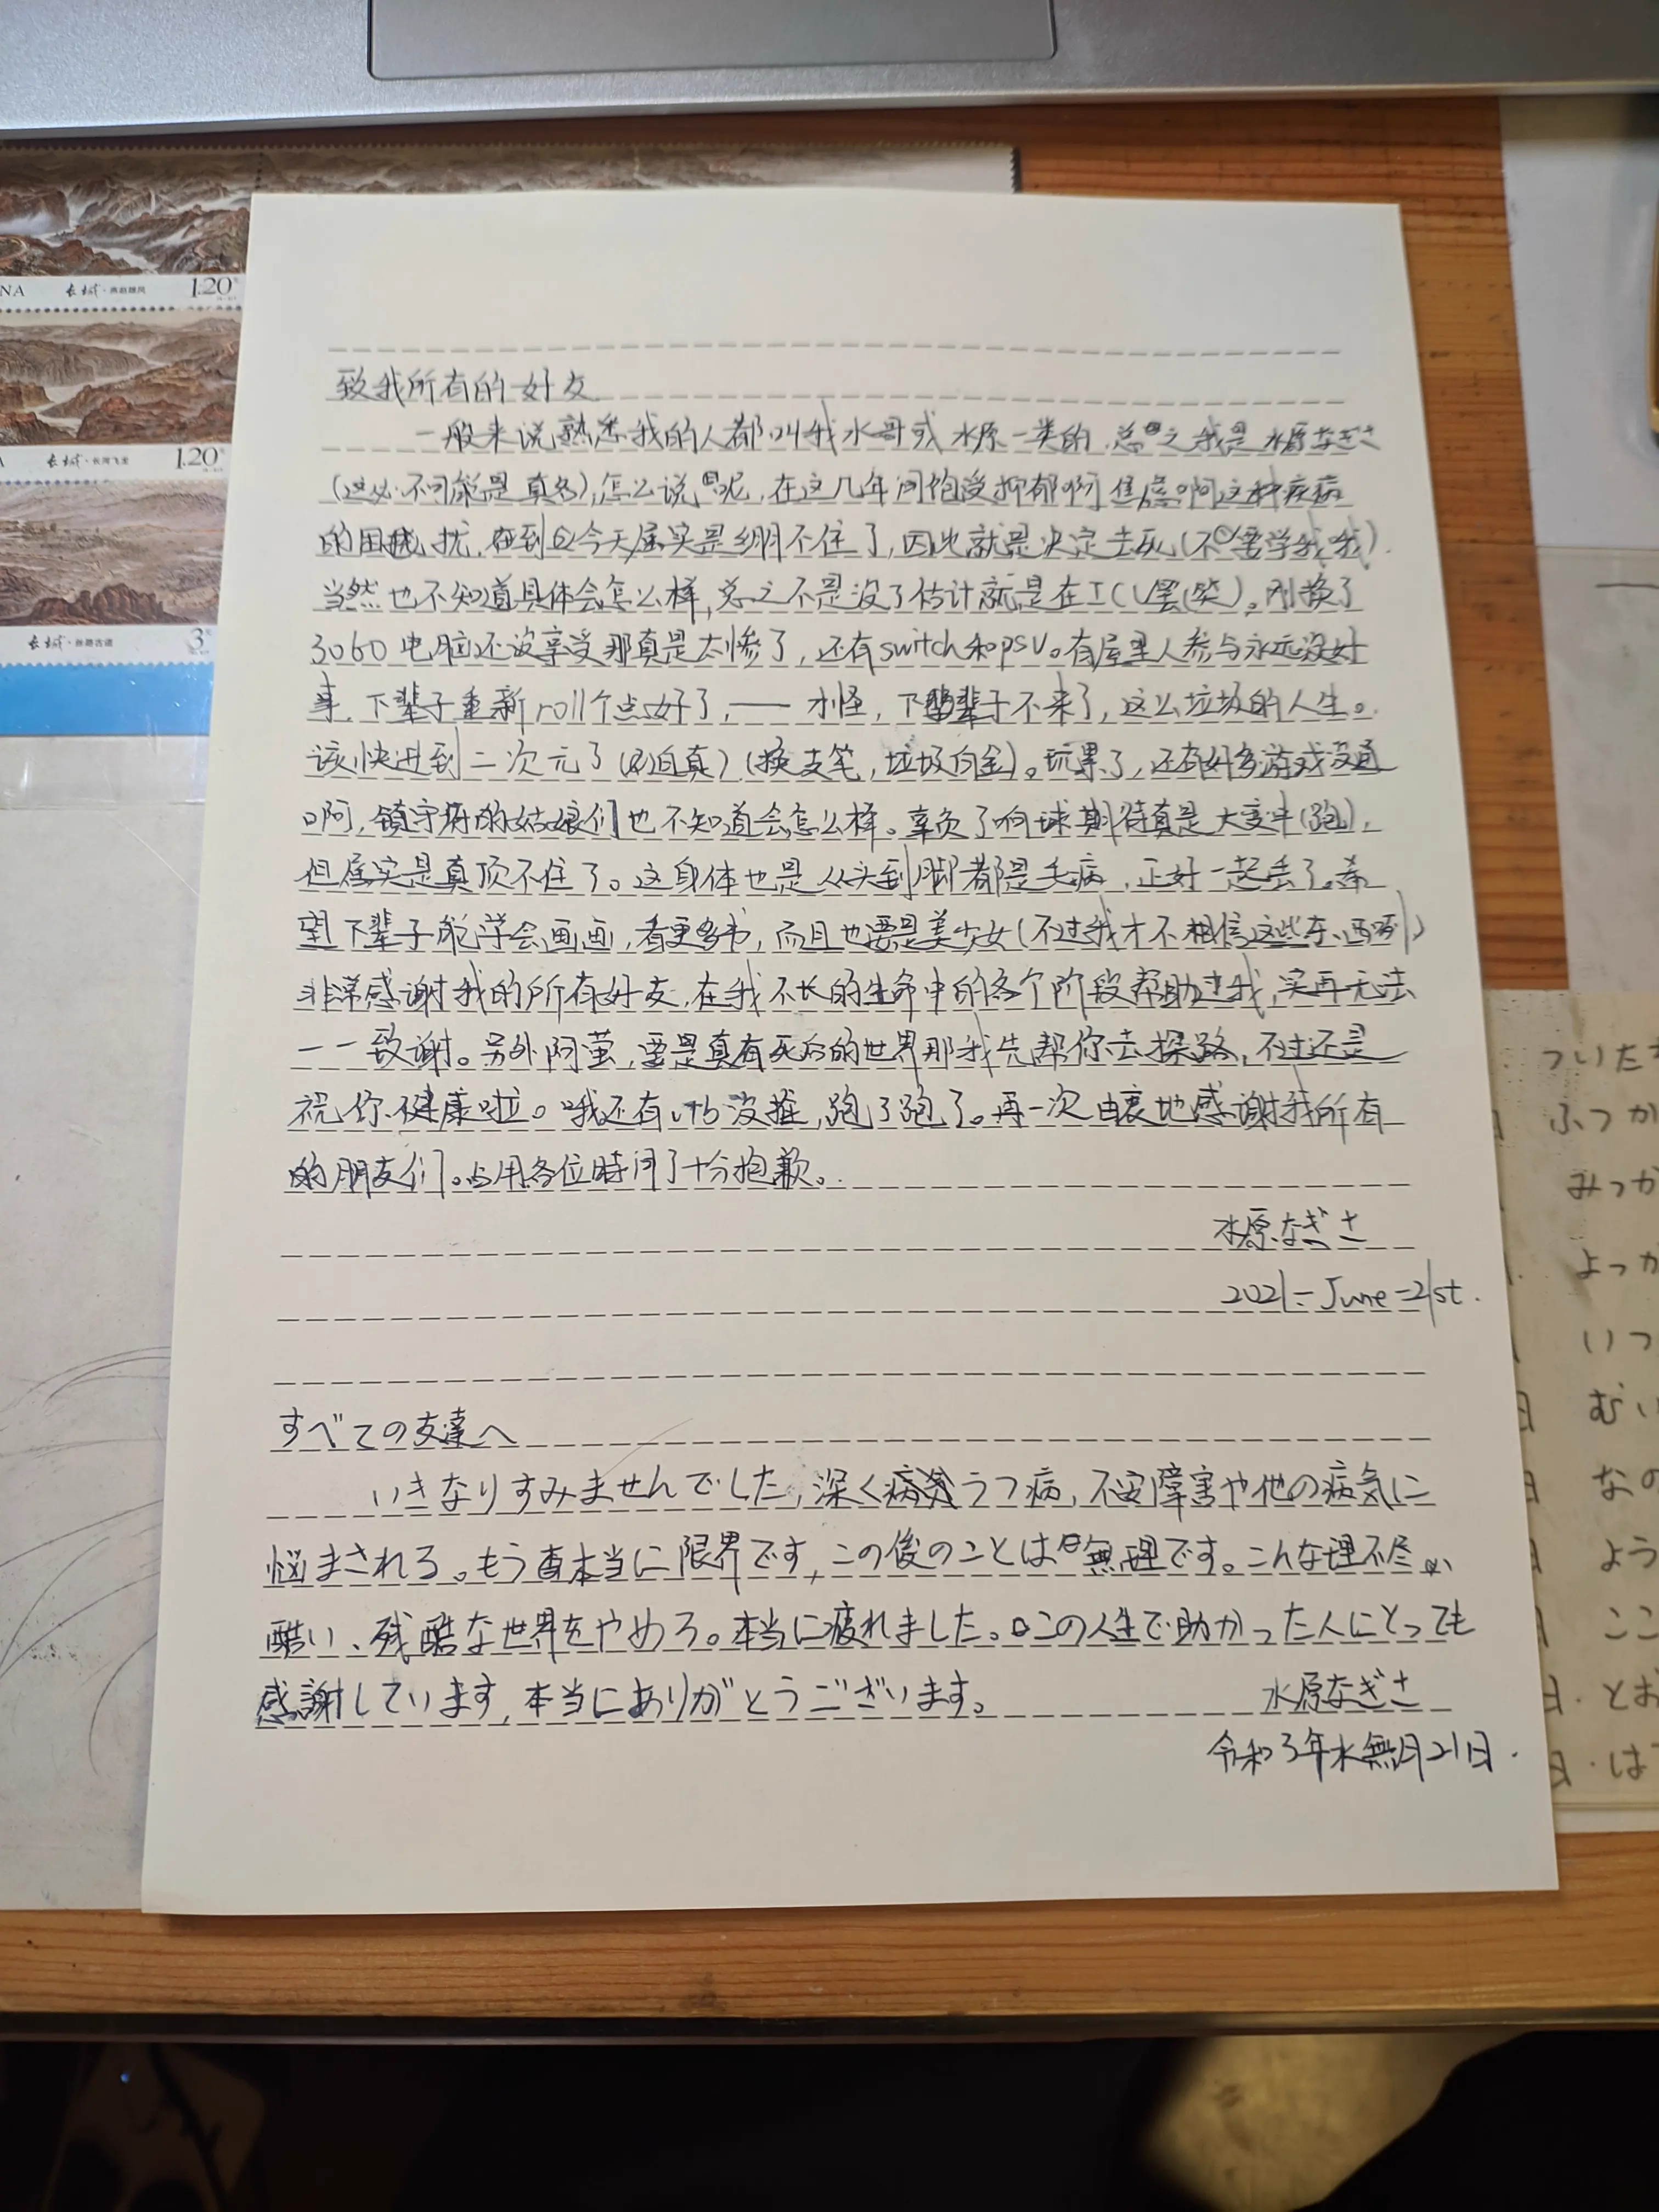 NA 长城 1.20
长城 1.20
长城 3
致我所有的好友
一般来说熟悉我的人都叫我水哥或水原一类的,总之我是水原なぎさ
(这必不可能是真名),怎么说呢,在这几年间饱受抑郁啊焦虑啊这种疾病
的困扰,到今天属实是绷不住了,因此就是决定去死(不要学我哦)
当然也不知道具体会怎么样,总之不是没了估计就是在ICU罢(笑)。刚换了
3060电脑还没享受那真是太惨了,还有switch和psv。有屋里人参与永远没好
事,下辈子重新roll个点好了,——才怪,下辈子不来了,这么垃圾的人生。
该快进到二次元了(迫真)(换支笔,垃圾白金)。玩累了,还有好多游戏没通
啊,镇守府的姑娘们也不知道会怎么样。辜负了啊球期待真是大变牛(跑),
但属实是真顶不住了。这身体也是从头到脚都是毛病,正好一起丢了。希
望下辈子能学会画画,看更多书,而且也要是美少女(不过我才不相信这些东西啊)
非常感谢我的所有好友,在我不长的生命中的各个阶段帮助过我,实再无法
一一致谢。另外阿萤,要是真有死后的世界那我先帮你去探路,不过还是
祝你健康啦。哦还有没推,跑了跑了。再一次由衷地感谢我所有
的朋友们。占用各位時间了十分抱歉。
水原なぎさ
2021-June-21st.
すべての友達へ
いきなりすみませんでした,深くうつ病,不安障害や他の病気に
悩まされる。もう本当に限界です,この後のことは無理です。こんな理不尽
酷い、残酷な世界をやめろ。本当に疲れました。この人生で助かった人にとっても
感謝しています,本当にありがとうございます。 水原なぎさ
令和3年水無月21日.
ついた
ふつか
みつか
よっか
いつ
日 むい
日 なの
日 よう
ここ
日・とお
日・は